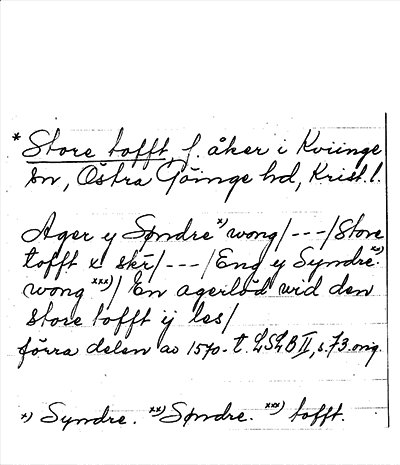 * Store tofft, f. åker i Kviinge
sn, Östra Göinge hd, Krist. l.
Ager y Søndre x) wong/---/Store
tofft x skr/---/Eng y Syndre xx)
wong xxx)/ En agerlød wid den
store tofft ij les/
förra delen av 1570. t. LSLB II, s. 73. orig.
x) Syndre. xx) Søndre. xxx) tofft.